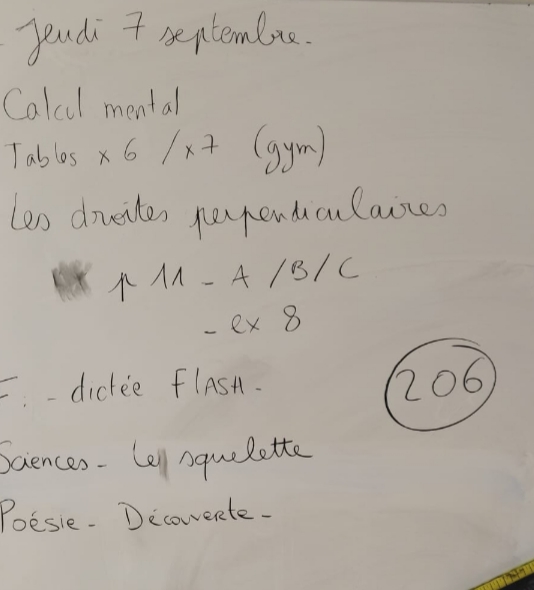 Jeudi 7 septembre.
Calcul mental
Tables x 6 / x 7 (gym)
Les droites perpendiculaires
p 11 - A / B / C
- ex 8
F. - dictée FLASH -
206
Sciences - Le squelette
Poésie - Découverte -